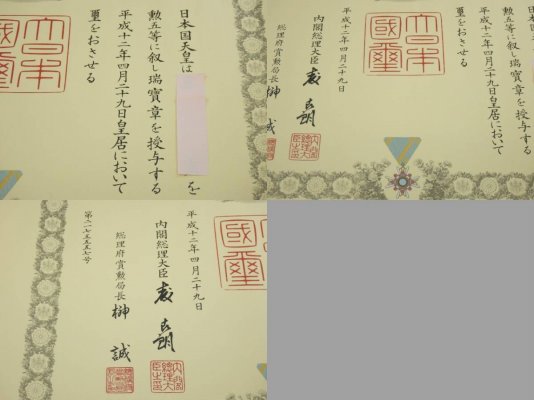 日本国天皇は を
勲五等に叙し瑞寶章を授与する
平成十二年四月二十九日皇居において
璽をおさせる
大日本國璽
日本国天
勲五等に叙し瑞寶章を授
平成十二年四月二十九日皇居において
璽をおさせる
大日本國璽
平成十二年四月二十九日
内閣総理大臣 森 喜朗
総理府賞勲局長 榊 誠
國璽
平成十二年四月二十九日
内閣総理大臣 森 喜朗
総理府賞勲局長 榊 誠